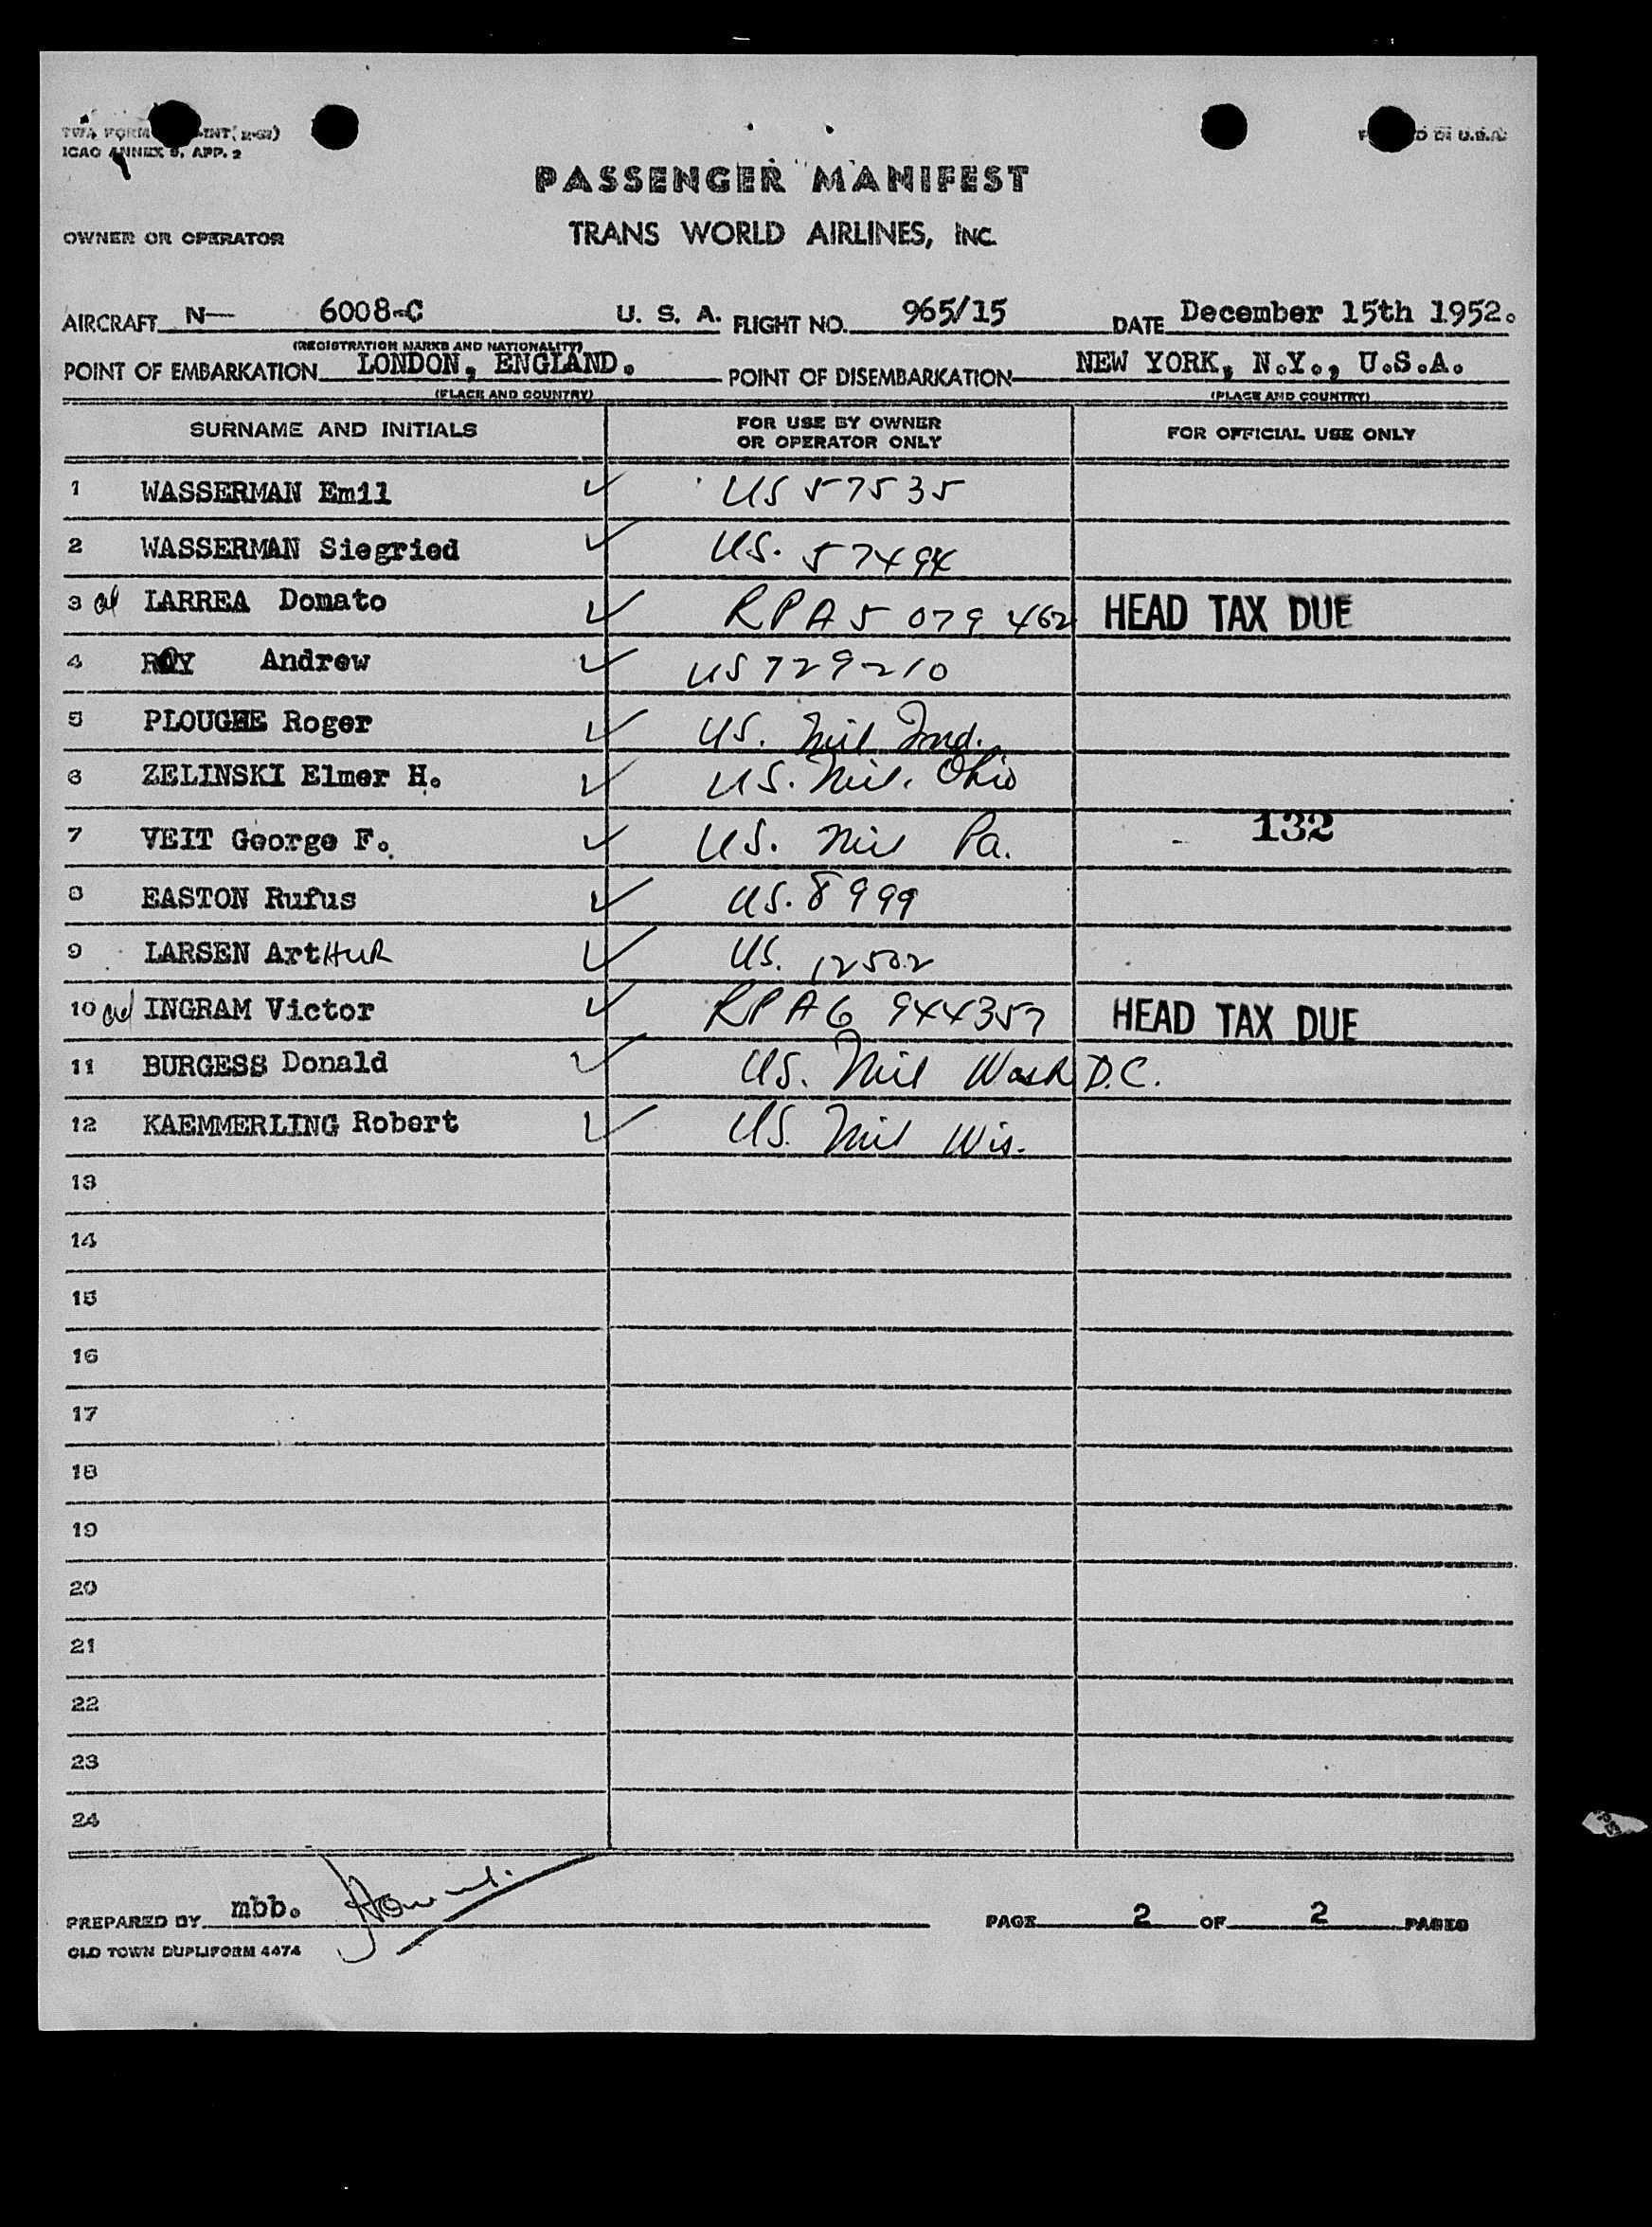 ICAO ANNEX 9, APP. 2
PASSENGER MANIFEST
OWNER OR OPERATOR TRANS WORLD AIRLINES, INC.
AIRCRAFT N— 6008-C U. S. A. FLIGHT NO. 965/15 DATE December 15th 1952.
(REGISTRATION MARKS AND NATIONALITY)
POINT OF EMBARKATION LONDON, ENGLAND. POINT OF DISEMBARKATION NEW YORK, N.Y., U.S.A.
(PLACE AND COUNTRY) (PLACE AND COUNTRY)
SURNAME AND INITIALS FOR USE BY OWNER OR OPERATOR ONLY FOR OFFICIAL USE ONLY
1 WASSERMAN Emil ✓ US 57535
2 WASSERMAN Siegried ✓ US. 57494
3 LARREA Domato ✓ RPA5 079 462 HEAD TAX DUE
4 ROY Andrew ✓ US 729210
5 PLOUGHE Roger ✓ US. Mil Ind.
6 ZELINSKI Elmer H. ✓ US. Mil. Ohio
7 VEIT George F. ✓ US. Mil Pa. 132
8 EASTON Rufus ✓ US. 8999
9 LARSEN ArtHUR ✓ US. 12502
10 INGRAM Victor ✓ RPA6 944357 HEAD TAX DUE
11 BURGESS Donald ✓ US. Mil Wash D.C.
12 KAEMMERLING Robert ✓ US. Mil Wis.
13
14
15
16
17
18
19
20
21
22
23
24
PREPARED BY mbb. PAGE 2 OF 2 PAGES
OLD TOWN DUPLIFORM 4474